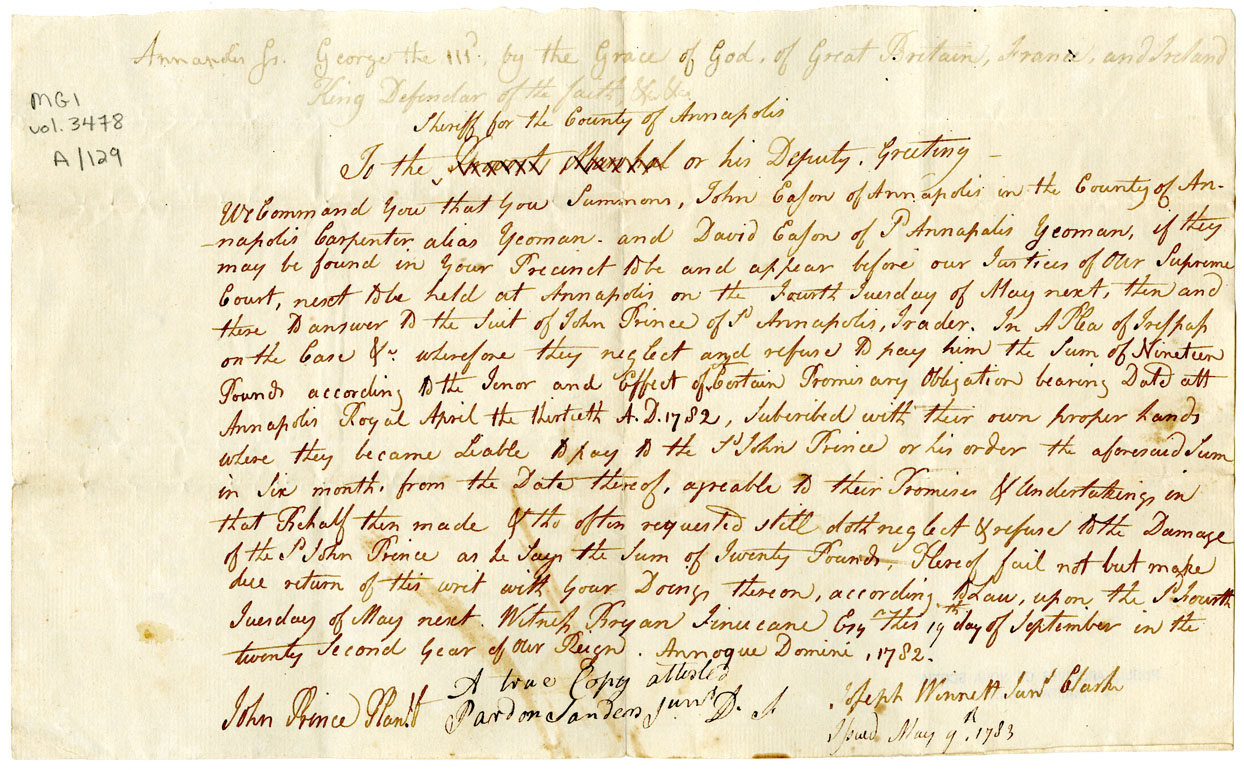 Annapolis Ss. George the IIIᵈ. by the Grace of God, of Great Britain, France, and Ireland
King Defendar of the faith &c &c
MG1
vol. 3478
A/129
Sheriff for the County of Annapolis
To the Provost Marshal or his Deputy. Greeting
We Command You that You Summons, John Eason of Annapolis in the County of An-
-napolis Carpenter alias Yeoman. and David Eason of Sᵈ Annapolis Yeoman, if they
may be found in Your Precinct to be and appear before our Justices of Our Supreme
Court, next to be held at Annapolis on the Fourth Tuesday of May next, then and
there to answer to the Suit of John Prince of Sᵈ Annapolis, Trader. In A Plea of Trespass
on the Case &c wherefore they neglect and refuse to pay him the Sum of Nineteen
Pounds according to the Tenor and Effect of Certain Promisary Obligation bearing Date att
Annapolis Royal April the thirtieth A.D. 1782, Subcribed with their own proper hands
where they became Leable to pay to the Sᵈ John Prince or his order the aforesaid Sum
in Six month, from the Date thereof, agreable to their Promises & Undertakings in
that Behalf then made & tho often requested still doth neglect & refuse to the Damage
of the Sᵈ John Prince as he Says the Sum of Twenty Pounds, Hereof fail not but make
due return of this writ with Your Doings thereon, according to Law, upon the Sᵈ Fourth
Tuesday of May next. Witness Bryan Finucane Esqʳ this 19ᵗʰ day of September in the
twenty Second Year of Our Reign. Annoque Domini, 1782.
A true Copy attested
John Prince Plantf
Pardon Sanders Junʳ D. S
Joseph Winnett Junʳ Clark
Issued May 9ᵗʰ. 1783